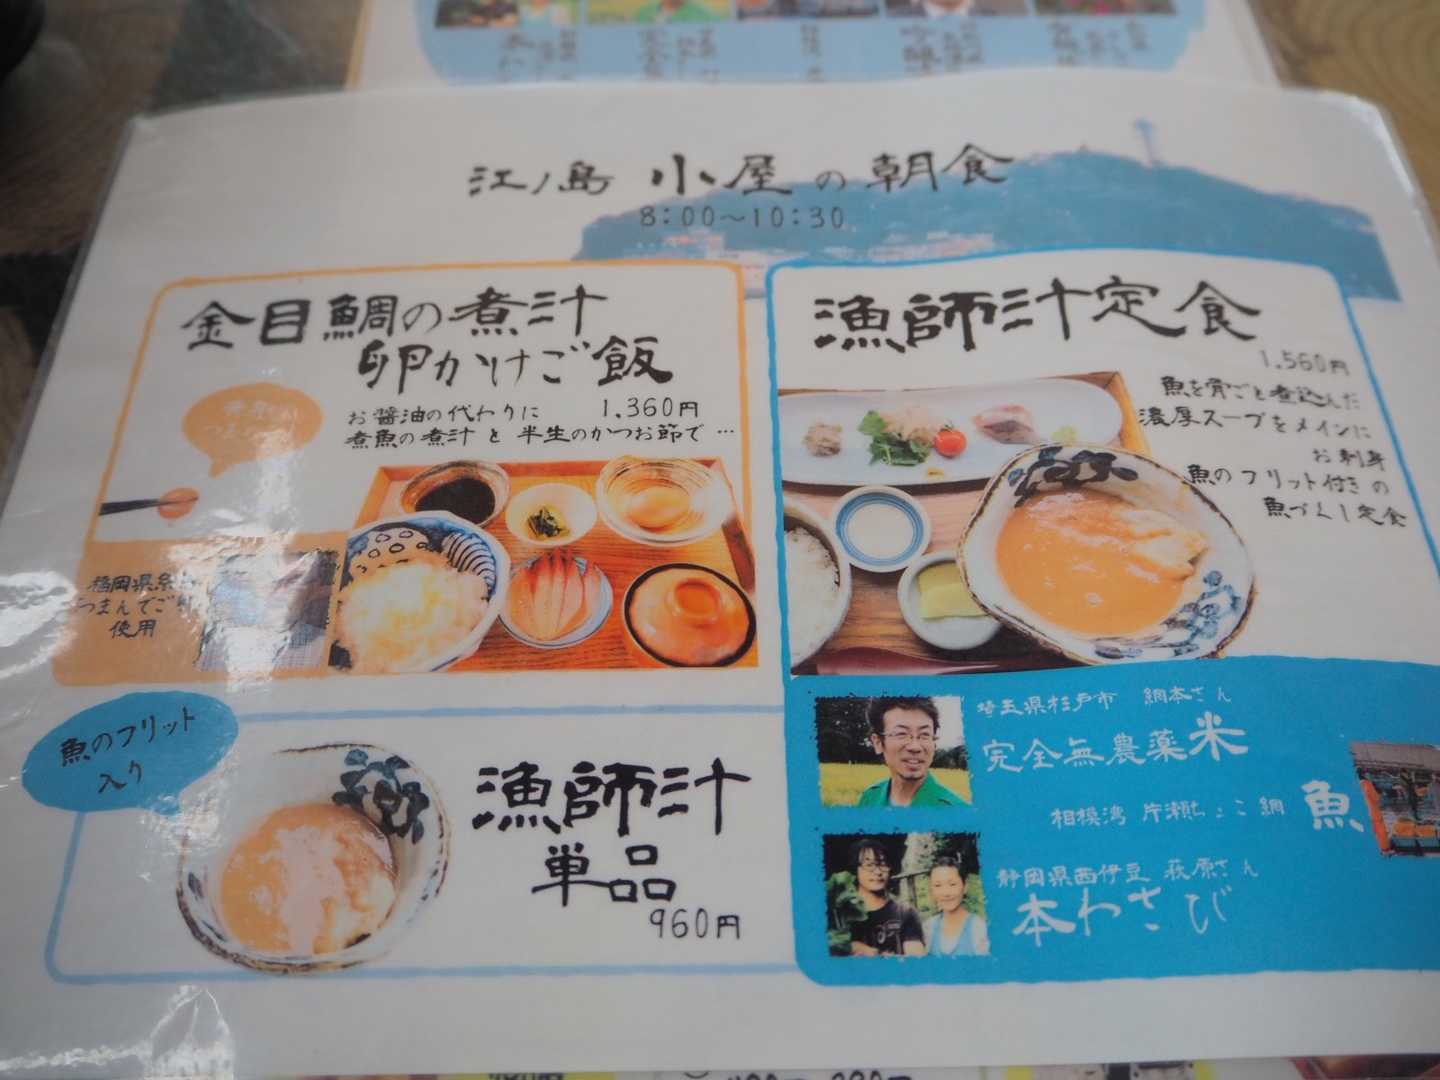 江ノ島 小屋の朝食
8:00～10:30
金目鯛の煮汁
卵かけご飯
お醤油の代わりに 1,360円
煮魚の煮汁と半生のかつお節で…
福岡県糸
つまんでご
使用
漁師汁定食
1,560円
魚を骨ごと煮込んだ
濃厚スープをメインに
お刺身
魚のフリット付きの
魚づくし定食
魚のフリット
入り
漁師汁
単品
960円
埼玉県杉戸市 網本さん
完全無農薬米
相模湾 片瀬 網 魚
静岡県西伊豆 萩原さん
本わさび